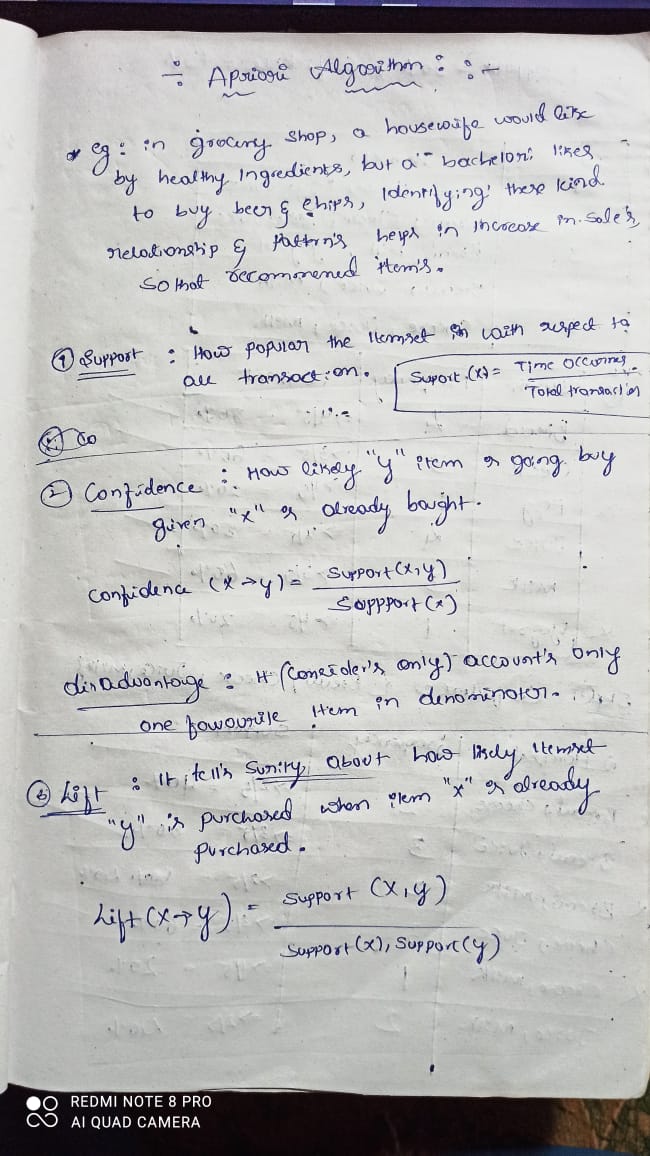 ÷ Apriori Algorithm : :-
* eg : in grocery shop, a housewife would like
by healthy Ingredients, but a bachelor likes
to buy beer & chips, Identifying these kind
relationship & Pattern's helps in Increase in sale's,
so that recommened item's.
① Support : How popular the Itemset in with respect to
all transaction.
Suport (x) = Time Occurres
Total transaction
② Co
② Confidence : How likely "y" item is going buy
given "x" is already bought.
Confidence (x → y) = Support (x, y)
Soppport (x)
disadvantaige : It (Consider's only) account's only
one favourite Item in denominoter.
③ Lift : It tell's about how likely itemset
"y" is purchased when item "x" is already
purchased.
Lift (x → y) = Support (x, y)
Support (x), Support (y)
REDMI NOTE 8 PRO
AI QUAD CAMERA